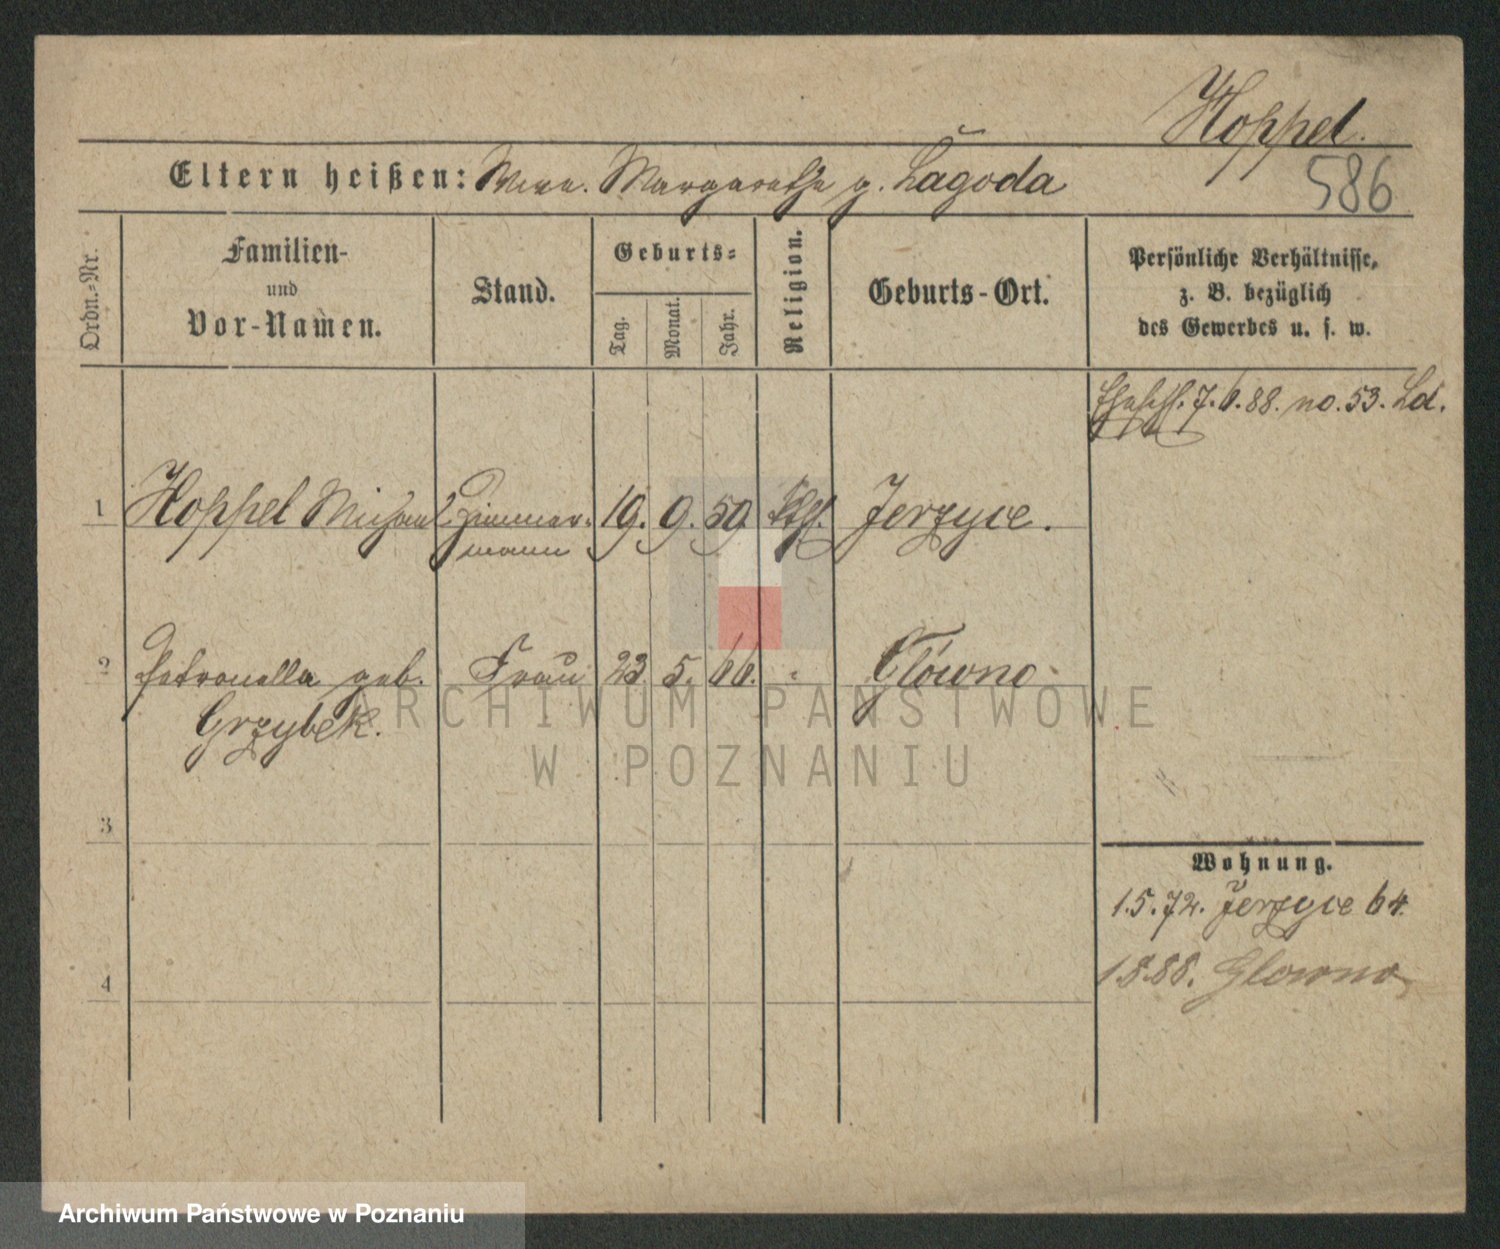 Hoppel.
Eltern heißen: Margarethe g. Lagoda
586
Ordn.-Nr.
Familien-
und
Vor-Namen.
Stand.
Geburts-
Tag.
Monat.
Jahr.
Religion.
Geburts-Ort.
Persönliche Verhältnisse,
z. B. bezüglich
des Gewerbes u. s. w.
7.6.88. no. 53. Ld.
1 Hoppel Michael Zimmer- 19. 9. 59 kth. Jerzyce.
mann
2 Petronella geb. Frau 23. 5. 66. " Główno
Grzybek.
3
4
Wohnung.
1.5.72. Jerzyce 64.
1888. Glowno
ARCHIWUM PAŃSTWOWE
W POZNANIU
Archiwum Państwowe w Poznaniu